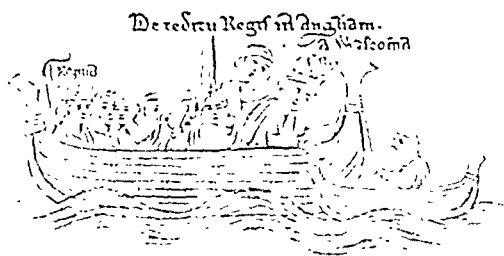 De reditu Regis in Angliam.
a Wasconia
Regina